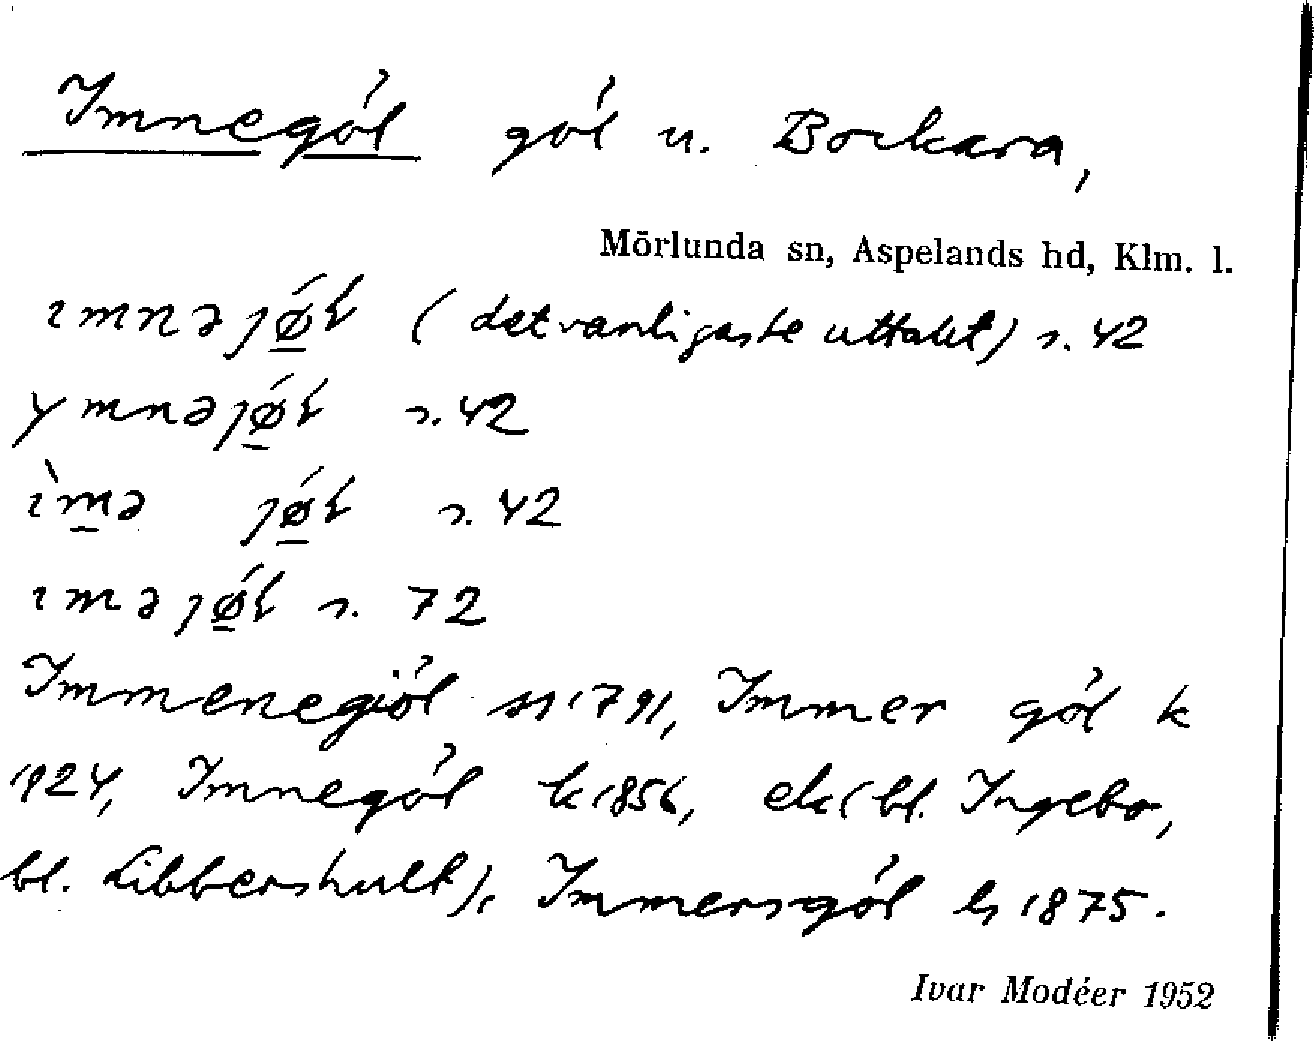 Imnegöl göl u. Bockara,
Mörlunda sn, Aspelands hd, Klm. l.
ımnəȷǿ̱ł (det vanligaste uttalet) s. 42
ymnəȷǿ̱ł s. 42
ı̀m̱ə ȷǿ̱ł s. 42
ıməȷǿ̱ł s. 72
Immenegiöl 1791, Immer göl k
1924, Imnegöl k 1856, ek (bl. Ingebo,
bl. Libbershult), Immersgöl hs 1875.
Ivar Modéer 1952